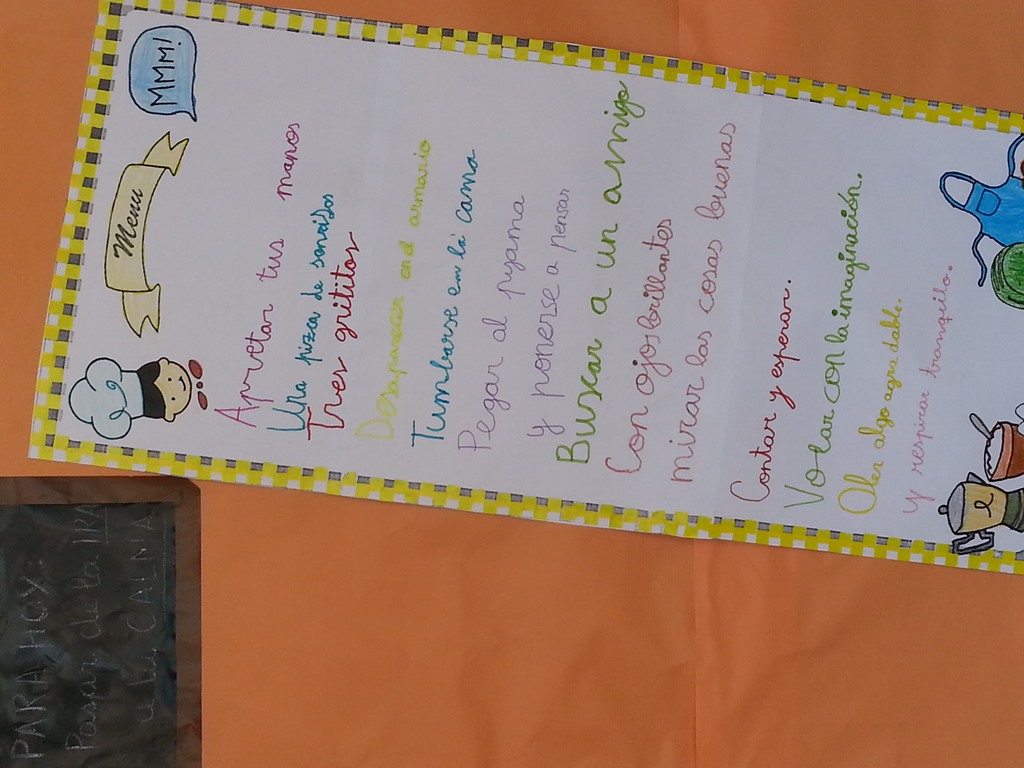 MMM!
Menu
Apretar tus manos
Una pizca de sonidos
Tres grititos
Desaparecer en el armario
Tumbarse en la cama
Pegar al pijama
y ponerse a pensar
Buscar a un amigo
Con ojos brillantes
mirar las cosas buenas
Contar y esperar.
Volar con la imaginación.
Oler algo agradable.
Y respirar tranquilo.
PARA HOY:
Pasar de la IRA
a la CALMA